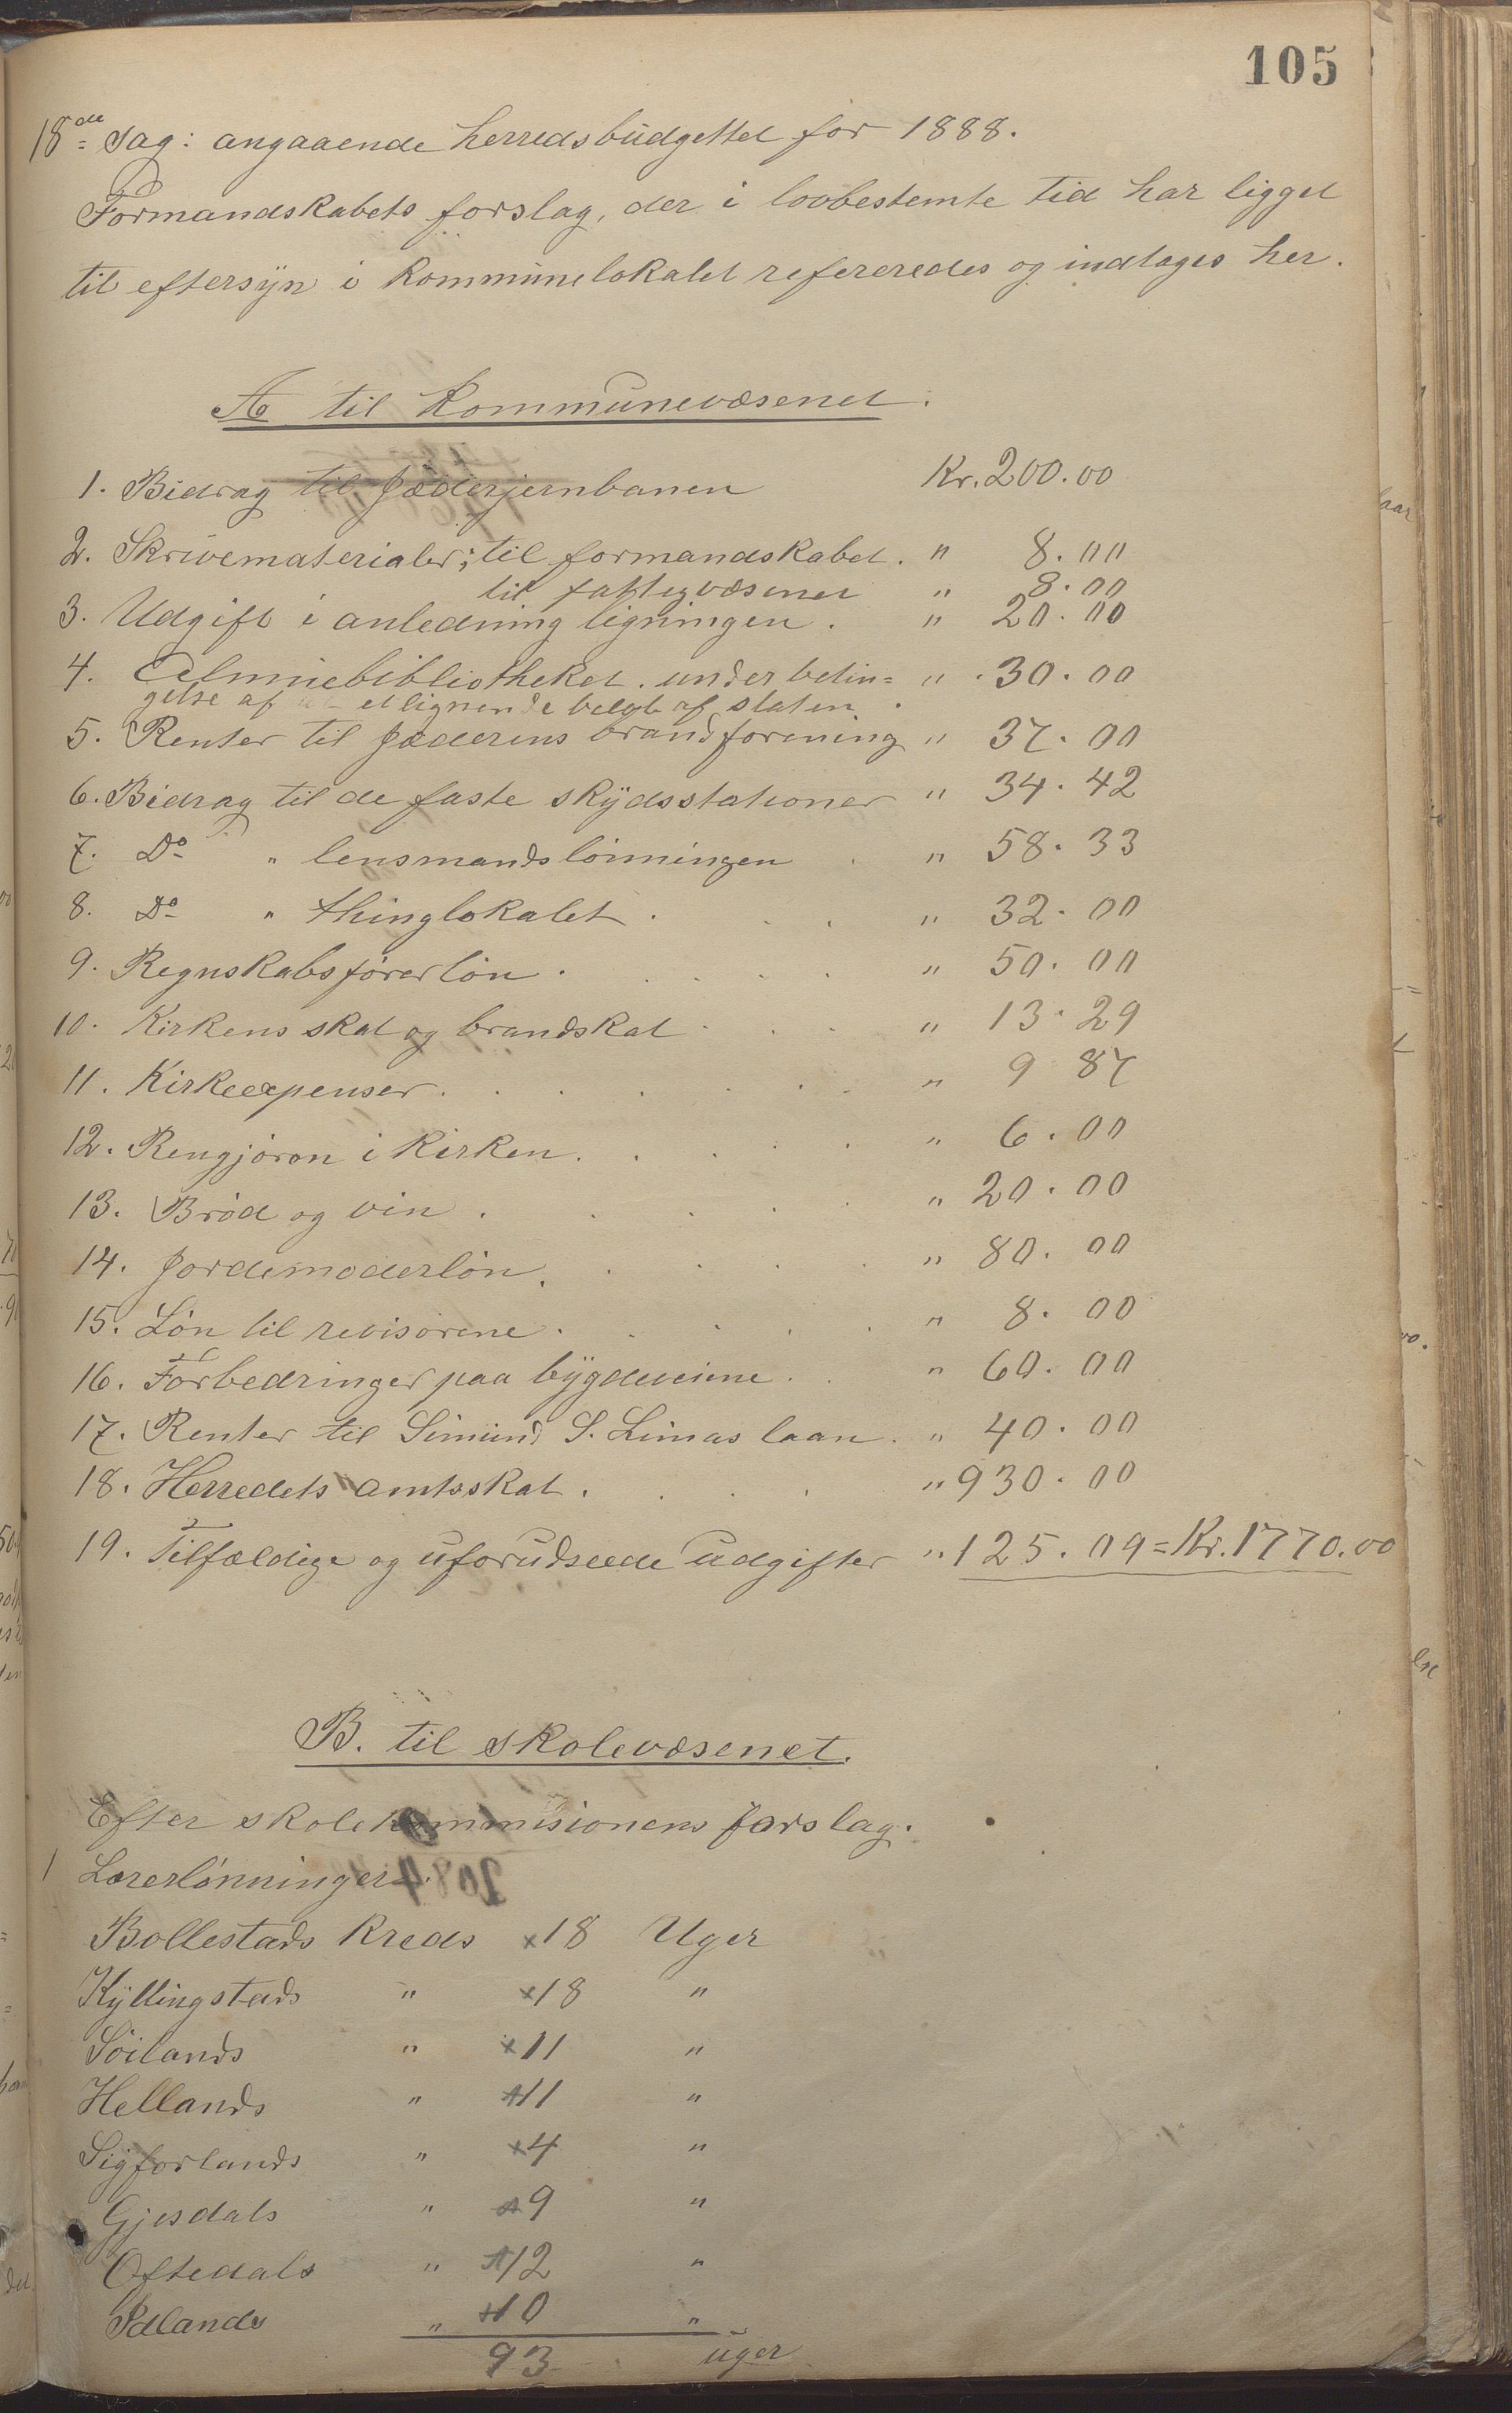 105
18de Sag: angaaende herredsbudgettet for 1888.
Formandskabets forslag, der i lovbestemte tid har ligget
til eftersyn i kommunelokalet refereredes og indtages her.
A til Kommunevæsenet.
1. Bidrag til Jæderjernbanen Kr. 200.00
2. Skrivematerialer; til formandskabet. " 8.00
til fattigvæsenet " 8.00
3. Udgift i anledning ligningen. " 20.00
4. Almuebibliotheket. under betin= " 30.00
gelse af et lignende beløb af staten.
5. Renter til Jæderens brandforening " 37.00
6. Bidrag til de faste skydsstationer " 34.42
7. Do " lensmandslønningen " 58.33
8. Do " thinglokalet. " 32.00
9. Regnskabsførerløn. " 50.00
10. Kirkens skat og brandskat " 13.29
11. Kirkeexpenser. " 9 87
12. Rengjøren i Kirken. " 6.00
13. Brød og vin. " 20.00
14. Jordemoderløn. " 80.00
15. Løn til revisorene. " 8.00
16. Forbedringer paa bygdeveiene. " 60.00
17. Renter til Simund S. Limas laan. " 40.00
18. Herredets amtsskat. " 930.00
19. Tilfældige og uforudseede udgifter " 125.09 = Kr. 1770.00
B. til skolevæsenet.
Efter skolekommisionens forslag.
1 Lærerlønninger.
Bollestads Kreds x18 Uger
Kyllingstads " x18 "
Søilands " x11 "
Hellands " x11 "
Sigforlands " x4 "
Gjesdals " x9 "
Oftedals " x12 "
Ædlands " x10 "
93 uger